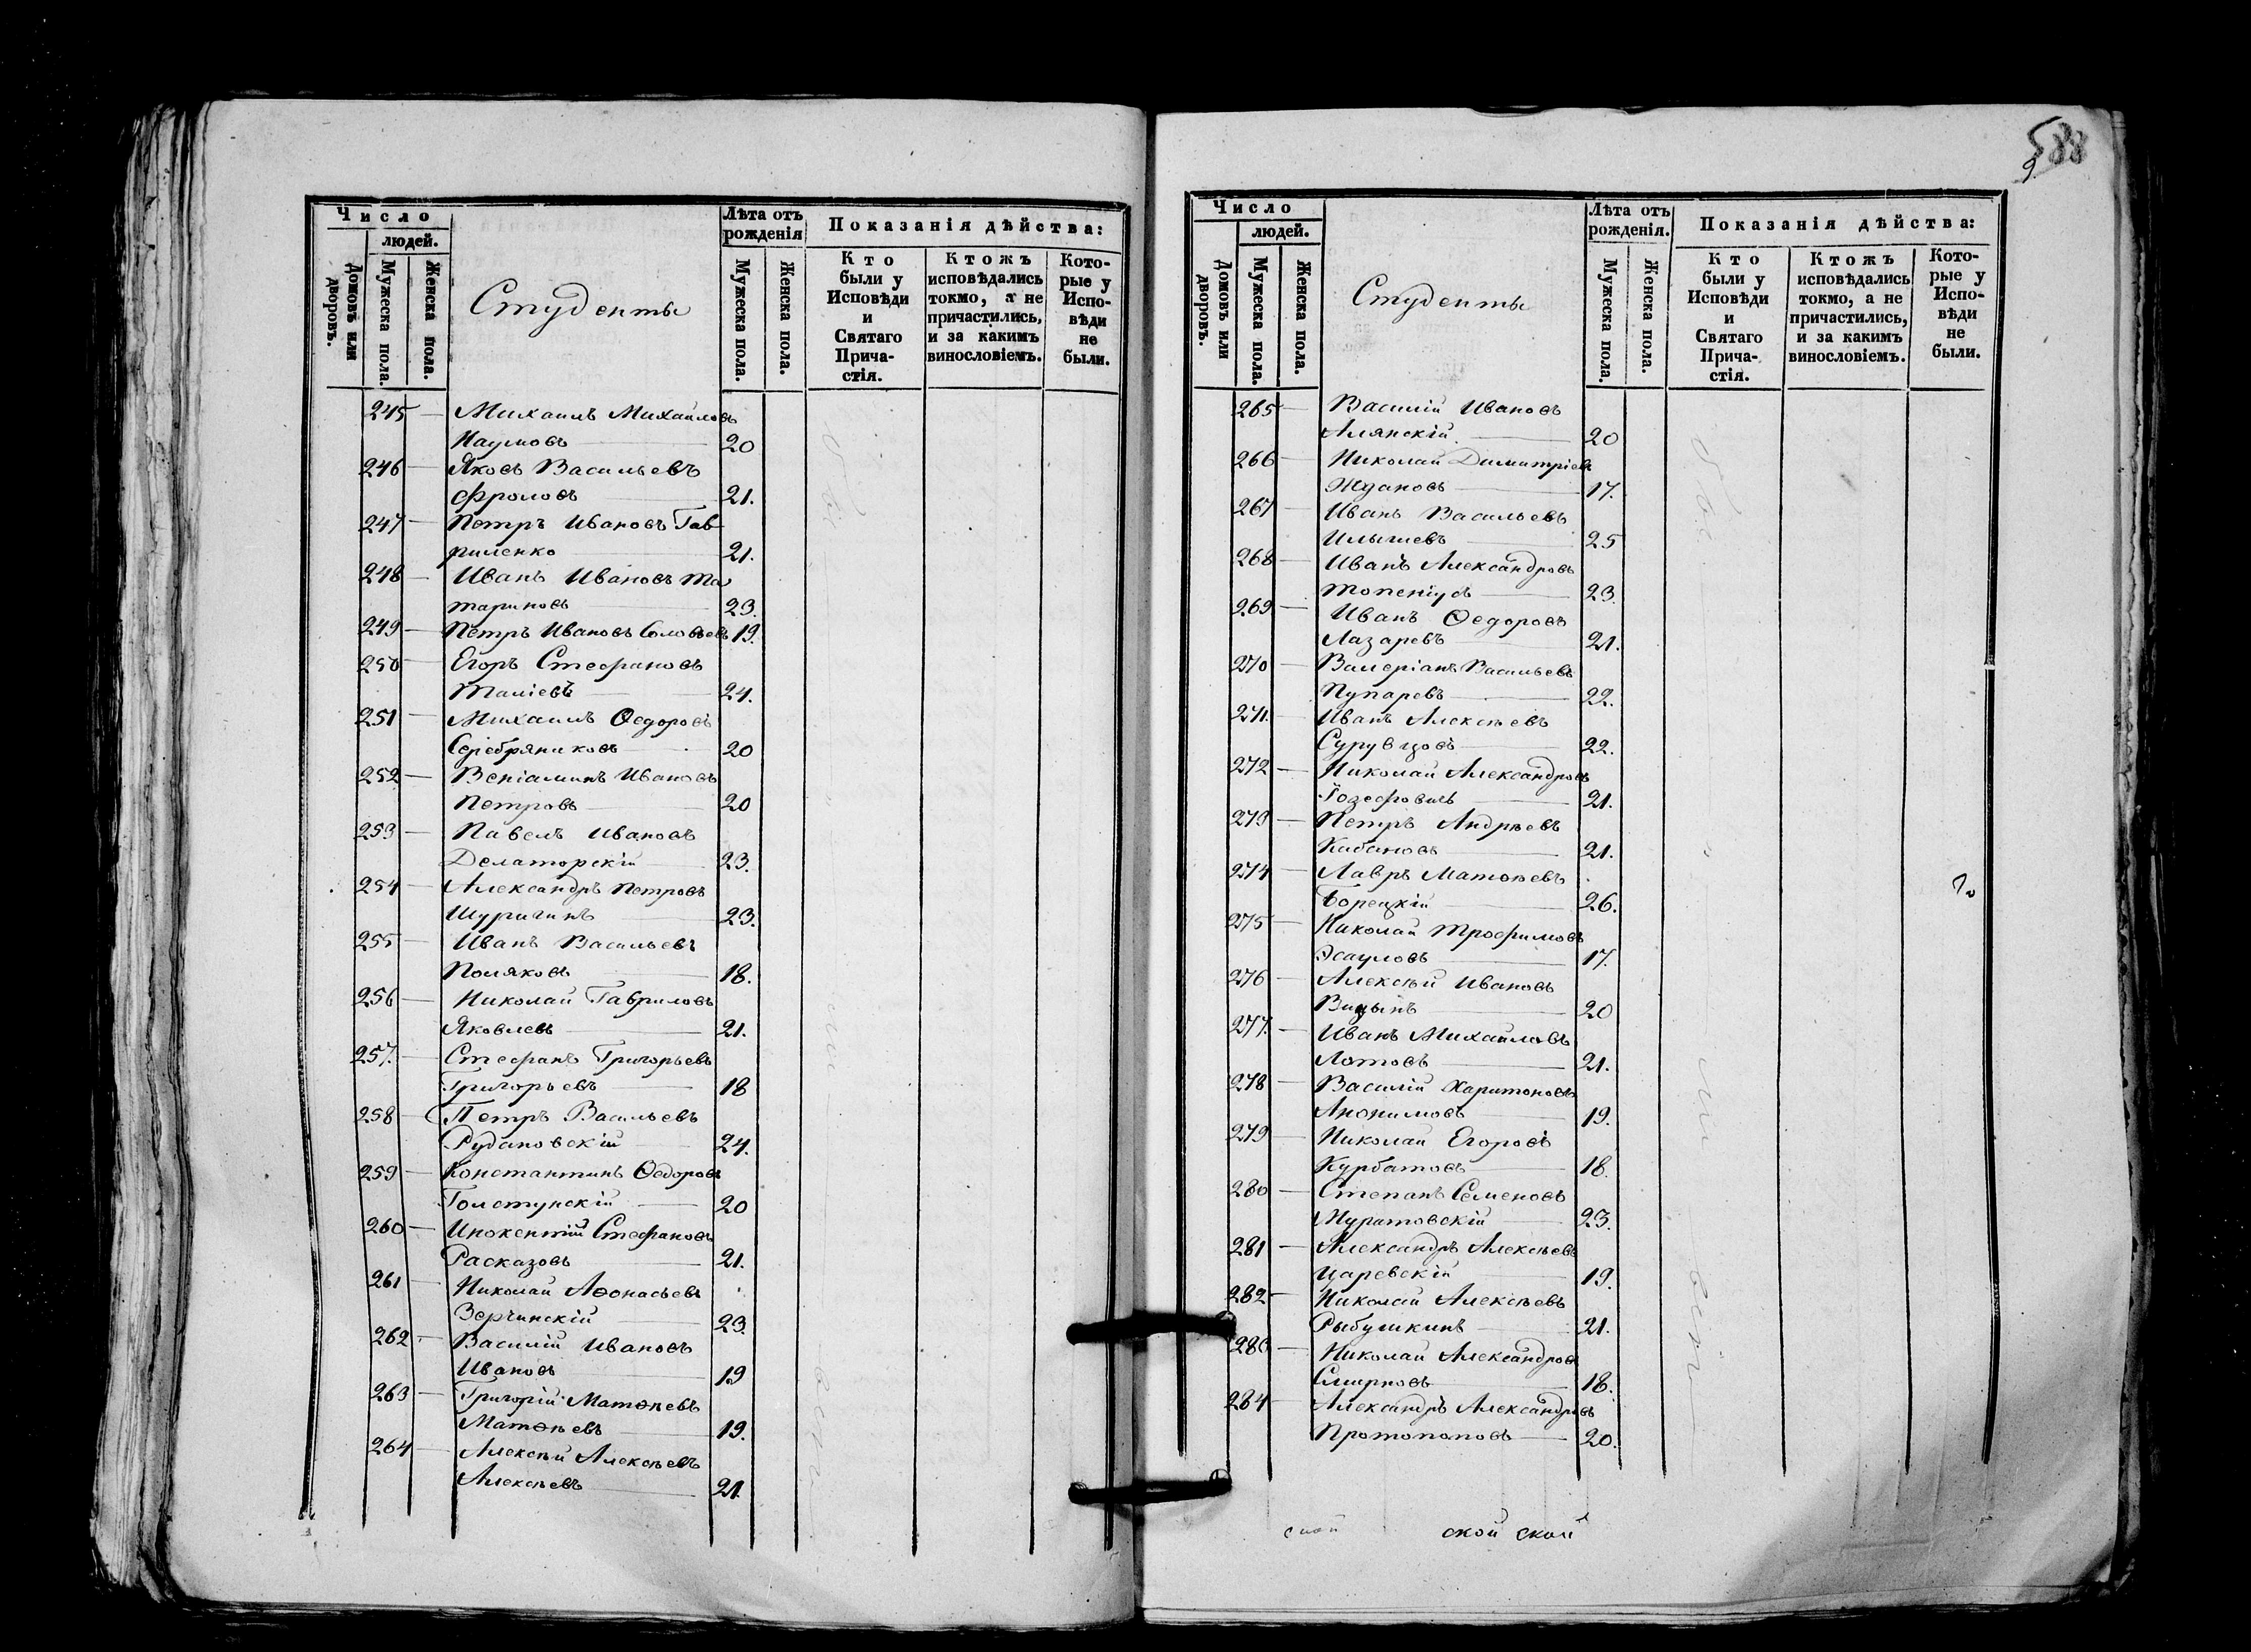 Число
людей.
Домовъ или дворовъ.
Мужеска пола.
Женска пола.
Студенты
Лѣта отъ рожденія
Мужеска пола.
Женска пола.
Показанія дѣйства:
Кто были у Исповѣди и Святаго Причастія.
Ктожъ исповѣдались токмо, а не причастились, и за какимъ винословіемъ.
Которые у Исповѣди не были.
245 — Михаилъ Михайловъ
Наумовъ — 20
246 — Яковъ Васильевъ
Фроловъ — 21.
247 — Петръ Ивановъ Гав-
риленко — 21.
248 — Иванъ Ивановъ Та
тариновъ — 23.
249 — Петръ Ивановъ Соловьевъ 19.
250 — Егоръ Стефановъ
Таліевъ — 24.
251 — Михаилъ Ѳедоровъ
Серебряниковъ — 20
252 — Веніаминъ Ивановъ
Петровъ — 20
253 — Павелъ Ивановъ
Делаторскій — 23.
254 — Александръ Петровъ
Шуригинъ — 23.
255 — Иванъ Васильевъ
Поляковъ — 18.
256 — Николай Гавриловъ
Яковлевъ — 21.
257. — Стефанъ Григорьевъ
Григорьевъ — 18
258 — Петръ Васильевъ
Рудановскій — 24.
259 — Константинъ Ѳедоровъ
Голстунскій — 20
260 — Инокентій Стефановъ
Расказовъ — 21.
261 — Николай Аѳонасьевъ
Зерчинскій — 23.
262 — Василій Ивановъ
Ивановъ — 19
263 — Григорій Матѳѣевъ
Матѳѣевъ — 19.
264 — Алексѣй Алексѣевъ
Алексѣевъ — 21.
588
9
Число
людей.
Домовъ или дворовъ.
Мужеска пола.
Женска пола.
Студенты
Лѣта отъ рожденія.
Мужеска пола.
Женска пола.
Показанія дѣйства:
Кто были у Исповѣди и Святаго Причастія.
Ктожъ исповѣдались токмо, а не причастились, и за какимъ винословіемъ.
Которые у Исповѣди не были.
265 — Василій Ивановъ
Алянскій — 20
266 — Николай Димитріевъ
Ждановъ — 17.
267 — Иванъ Васильевъ
Илышевъ — 25
268 — Иванъ Александровъ
Топеніусъ — 23.
269 — Иванъ Ѳедоровъ
Лазаревъ — 21.
270 — Валеріанъ Васильевъ
Пупаревъ — 22.
271. — Иванъ Алексѣевъ
Сурувцовъ — 22.
272 — Николай Александровъ
Іозефовичъ — 21.
273 — Петръ Андрѣевъ
Кабановъ — 21.
274 — Лавръ Матѳѣевъ
Борецкій — 26.
275 — Николай Трофимовъ
Эсауловъ — 17.
276 — Алексѣй Ивановъ
Вицынъ — 20
277. — Иванъ Михайловъ
Лотовъ — 21.
278 — Василій Харитоновъ
Анонимовъ — 19.
279 — Николай Егоровъ
Курбатовъ — 18.
280 — Степанъ Семеновъ
Муратовскій — 23.
281 — Александръ Алексѣевъ
Царевскій — 19.
282 — Николай Алексѣевъ
Рыбушкинъ — 21.
283 — Николай Александровъ
Смирновъ — 18.
284 — Александръ Александровъ
Протопоповъ — 20.
ской ской